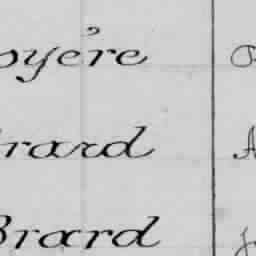 oyére
rard
Brard